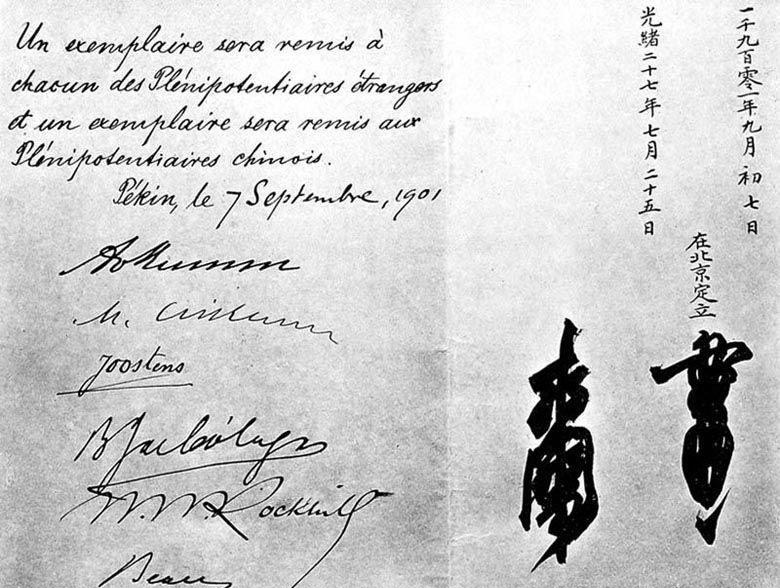 Un exemplaire sera remis à
chacun des Plénipotentiaires étrangers
et un exemplaire sera remis aux
Plénipotentiaires chinois.
Pékin, le 7 Septembre, 1901
Joostens
B. J. de Cólogan
W. W. Rockhill
Beau
一千九百零一年九月初七日
光緒二十七年七月二十五日
在北京定立